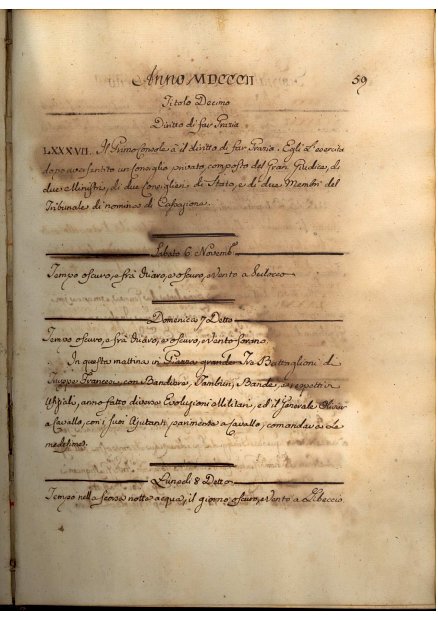 Anno MDCCCII
59
Titolo Decimo
Diritto di far Grazia
LXXXVII. Il Primo Console à il diritto di far Grazia. Egli l'esercita
dopo aver sentito un Consiglio privato, composto del Gran Giudice, di
due Ministri, di due Consiglieri di Stato, e di due Membri del
Tribunale di nomina di Cassazione.
Sabato 6 Novemb.
Tempo oscuro, e frà chiaro, e oscuro, e Vento a Scilocco
Domenica 7 Detto
Tempo oscuro, e frà chiaro, e oscuro, e Vento
In questa mattina in Piazza grande Battaglioni di
Truppe Francesi, con Bandiera, Tamburi, Bande, e respettivi
Ufiziali, anno fatto diverse Evoluzioni Militari, ed il Generale
a Cavallo, con i suoi Ajutanti parimente a Cavallo, comandava Le
medesime.
Lunedì 8 Detto
Tempo nella scorsa notte acqua, il giorno oscuro, e Vento a Libeccio